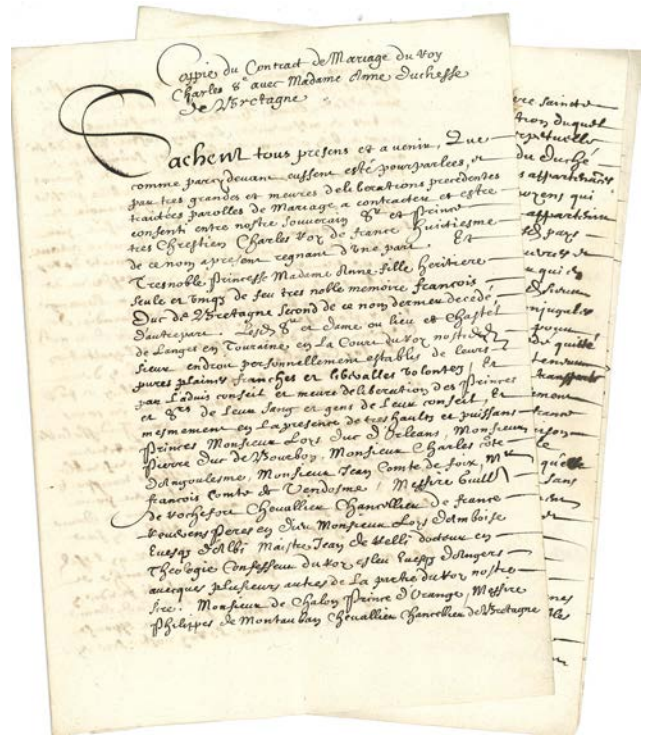 Coppie du Contract de Mariage du Roy
Charles 8e avec Madame Anne Duchesse
de Bretagne
Sachent tous presens et a venir, Que
comme parcy devant eussent esté pourparlees, et
par tres grandes et meures deliberations precedentes
traictées parolles de Mariage a contracter et estre
consenti entre nostre souverain Sr et Prince
tres Chrestien Charles Roy de france huictiesme
de ce nom apresent regnant d'une part. Et
Tresnoble Princesse Madame Anne fille heritiere
seule et uniqz de feu tres noble memoire françois
Duc de Bretagne second de ce nom dernier decedé,
d'autrepart. Lesdz Sr et dame ou lieu et Chastel
de Langes en Touraine en La Court du Roy nostredz
sieur endroit personnellement establis de leurs
pures plaines franches et liberalles volontez, Et
par L'advis conseil et meure deliberation des Princes
et Srs de Leur sang et gens de Leur conseil, Et
mesmement en La presence de tres haults et puissans
Princes Monsieur Loys Duc d'Orleans, Monsieur
Pierre Duc de Bourbon, Monsieur Charles côte
d'Angoulesme, Monsieur Jean Comte de foix, Mr
françois comte de Vendosme, Messire Guill
de Rochefort Chevallier Chancellier de france
Reverens Peres en Dieu Monsieur Loys d'Amboise
Evesqz d'Albi Maistre Jean de Relli docteur en
Theologie Confesseur du Roy esleu Evesqz d'Angers
avecques plusieurs autres de La partie du Roy nostre
sire. Monsieur de Chalon Prince d'Orange, Messire
Philippes de Montauban Chevallier Chancellier de Bretagne
saincte
duquel
perpetuelle
du Duché
appartenances
moyens qui
pays
qui
conjugales
pour
quicté
transports
quelle
sans